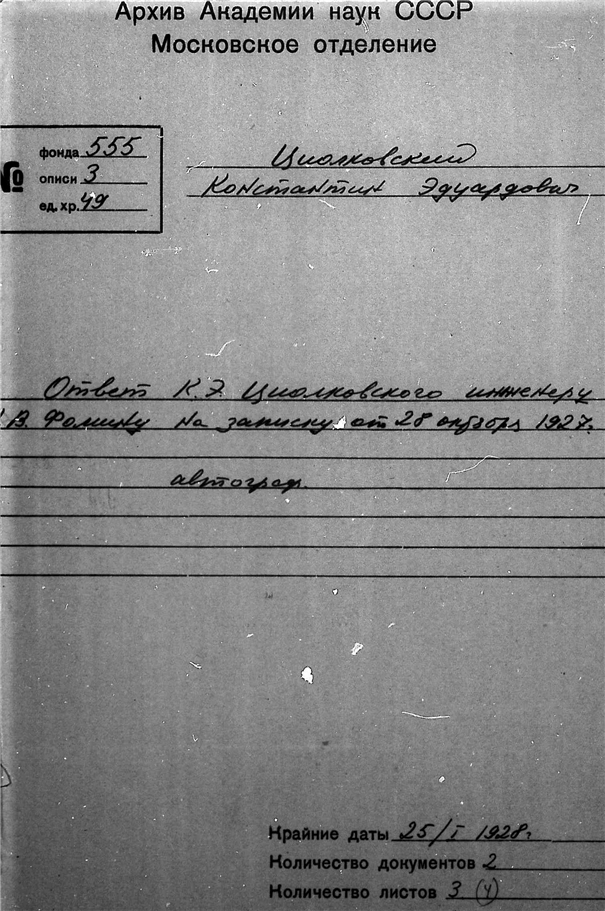 Архив Академии наук СССР
Московское отделение
№
фонда 555
описи 3
ед. хр. 49
Циолковский
Константин Эдуардович
Ответ К.Э. Циолковского инженеру
В. Фомину на записку от 28 октября 1927 г.
автограф.
Крайние даты 25/I 1928 г.
Количество документов 2
Количество листов 3 (4)